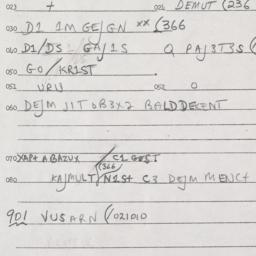 023 + 024 DEMUT (236
030 D1 1M GE/GN ** (366
040 D1/DS GA/1S Q PAJ3T3S
050 GO/KR1ST .
051 URU 052 O
060 DEJM J1T OB3X2 BALDDECENT
070 XAP+ ABAZUX /C1 GEST
(366
080 KAJMULT/N1S+ C3 DEJM MENC+
901 VUSARN (/021010